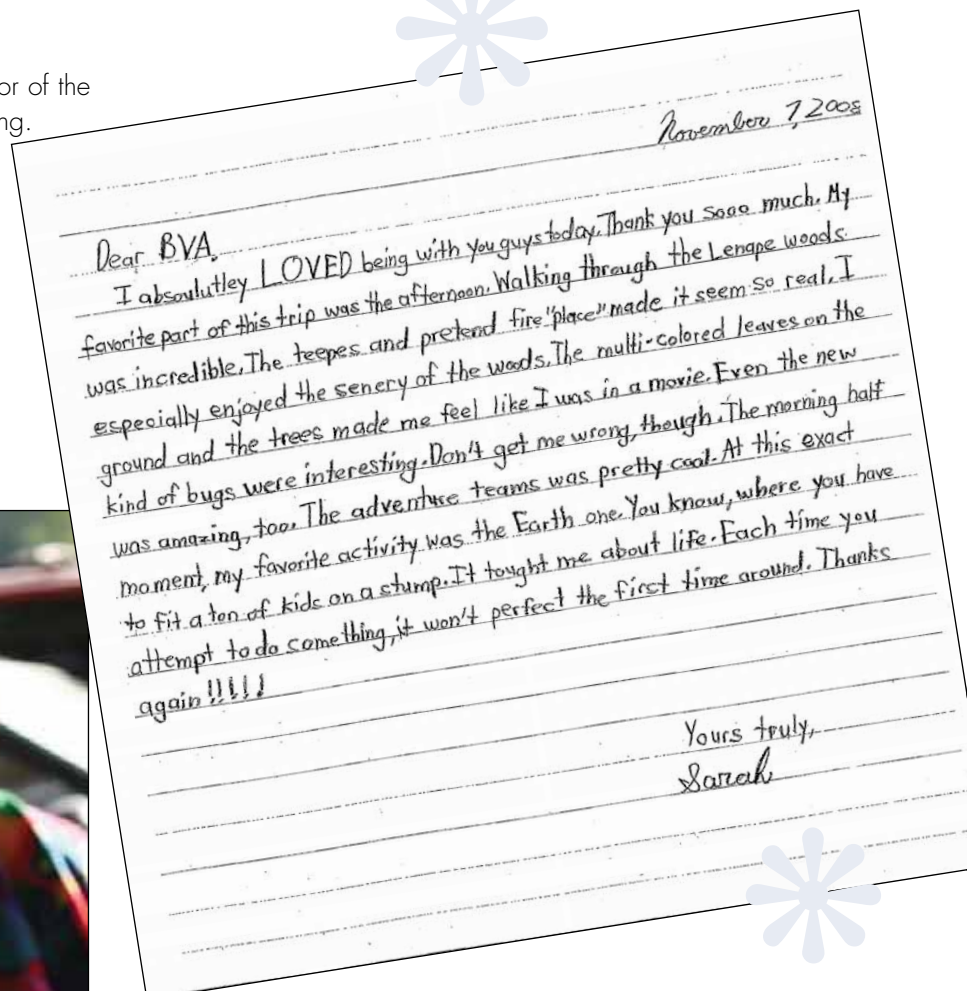 or of the
ng.
November 7, 2008
Dear BVA,
I absoulutley LOVED being with you guys today. Thank you sooo much. My
favorite part of this trip was the afternoon. Walking through the Lenape woods
was incredible. The teepes and pretend fire "place" made it seem so real. I
especially enjoyed the senery of the woods. The multi-colored leaves on the
ground and the trees made me feel like I was in a movie. Even the new
kind of bugs were interesting. Don't get me wrong, though. The morning half
was amazing, too. The adventure teams was pretty cool. At this exact
moment, my favorite activity was the Earth one. You know, where you have
to fit a ton of kids on a stump. It tought me about life. Each time you
attempt to do something, it won't perfect the first time around. Thanks
again !!!!!
Yours truly,
Sarah